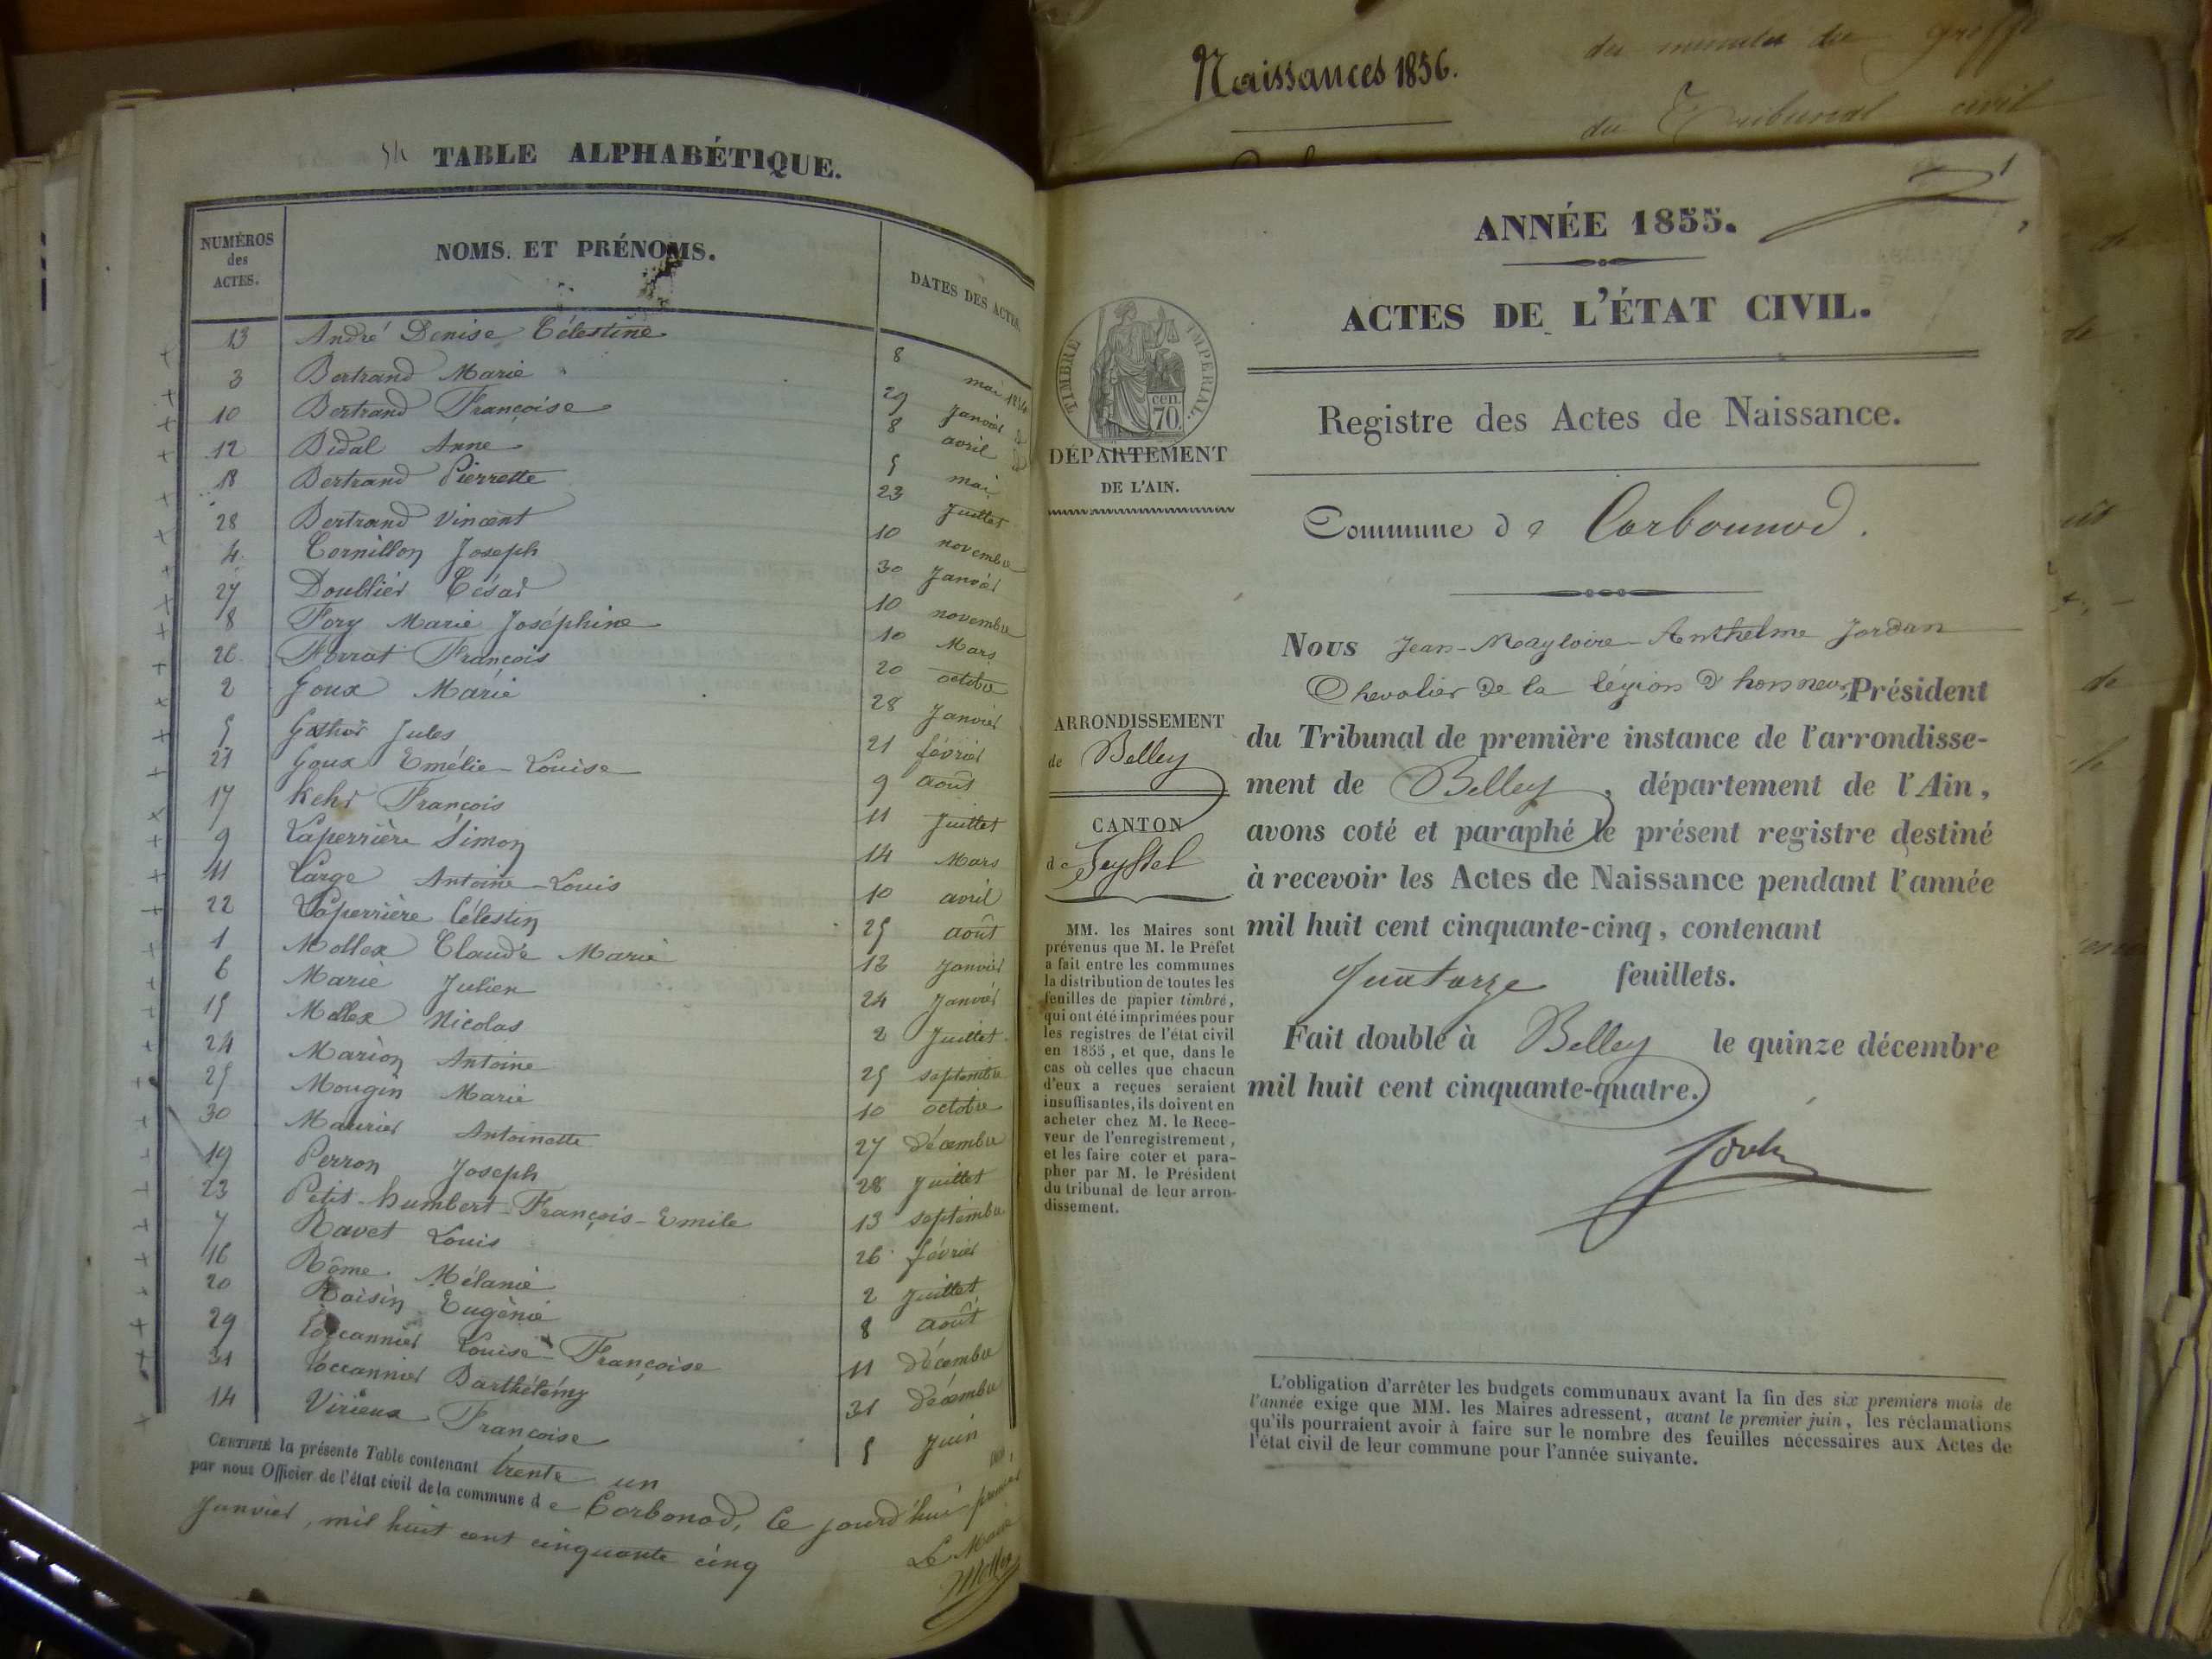 54 TABLE ALPHABÉTIQUE.
NUMÉROS des ACTES. NOMS ET PRÉNOMS. DATES DES ACTES.
13 André Denise Célestine 8 mai 1854
3 Bertrand Marie 29 Janvier
10 Bertrand Françoise 8 avril
12 Bidal Anne 5 mai
18 Bertrand Pierrette 23 Juillet
28 Bertrand Vincent 10 novembre
4 Cornillon Joseph 30 Janvier
27 Doublier César 10 novembre
8 Fory Marie Joséphine 10 Mars
26 Forrat François 20 octobre
2 Goux Marie 28 Janvier
5 Jules 21 février
21 Goux Emélie-Louise 9 août
17 Kehr François 11 Juillet
9 Laperrière Simon 14 Mars
11 Large Antoine-Louis 10 avril
22 Laperrière Célestin 25 août
1 Mollex Claude Marie 13 Janvier
6 Marie Julien 24 Janvier
15 Mollex Nicolas 2 Juillet
24 Marion Antoine 25 septembre
25 Mougin Marie 10 octobre
30 Maurier Antoinette 27 décembre
19 Perron Joseph 28 Juillet
23 Petit-humbert-François-Emile 13 septembre
7 Ravet Louis 26 février
16 Rôme Mélanie 2 Juillet
20 Raisin Eugènie 8 août
29 Toccannier Louise-Françoise 11 décembre
31 Toccannier Barthélémy 31 décembre
14 Virieux Françoise 5 Juin
CERTIFIÉ la présente Table contenant trente un
par nous Officier de l'état civil de la commune de Corbonod, Ce jourd'hui premier
Janvier, mil huit cent cinquante cinq
Le Maire
Mollex
Naissances 1856.
du greffe
du Tribunal civil
1
ANNÉE 1855.
ACTES DE L'ÉTAT CIVIL.
Registre des Actes de Naissance.
Commune de Corbounod.
TIMBRE IMPERIAL.
cen.
70.
DÉPARTEMENT
DE L'AIN.
ARRONDISSEMENT
de Belley
CANTON
de Seyssel
MM. les Maires sont
prévenus que M. le Préfet
a fait entre les communes
la distribution de toutes les
feuilles de papier timbré,
qui ont été imprimées pour
les registres de l'état civil
en 1855, et que, dans le
cas où celles que chacun
d'eux a reçues seraient
insuffisantes, ils doivent en
acheter chez M. le Rece-
veur de l'enregistrement,
et les faire coter et para-
pher par M. le Président
du tribunal de leur arron-
dissement.
Nous Jean-Magloire-Anthelme Jordan
Chevalier de la légion d'honneur, Président
du Tribunal de première instance de l'arrondisse-
ment de Belley, département de l'Ain,
avons coté et paraphé le présent registre destiné
à recevoir les Actes de Naissance pendant l'année
mil huit cent cinquante-cinq, contenant
quatorze feuillets.
Fait double à Belley le quinze décembre
mil huit cent cinquante-quatre.
L'obligation d'arrêter les budgets communaux avant la fin des six premiers mois de
l'année exige que MM. les Maires adressent, avant le premier juin, les réclamations
qu'ils pourraient avoir à faire sur le nombre des feuilles nécessaires aux Actes de
l'état civil de leur commune pour l'année suivante.